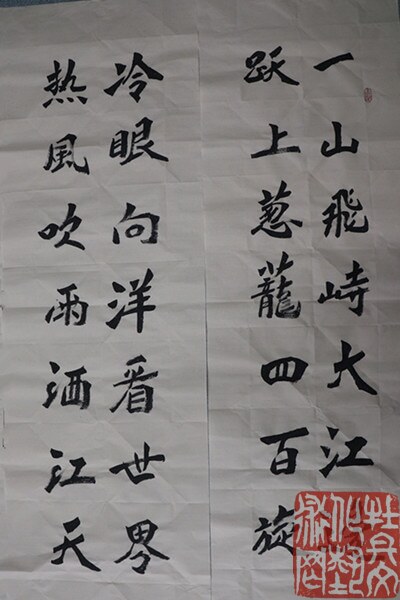 一山飛峙大江
跃上葱蘢四百旋
冷眼向洋看世界
热風吹雨洒江天